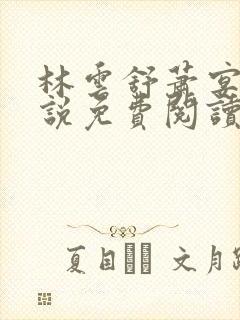 林雲舒蕭宴
說免費閱讀
夏目 文月